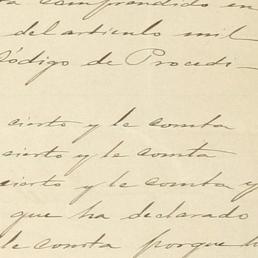 comprendido en
del artículo mil
Código de Procedi-
cierto y le consta
cierto y le consta
cierto y le consta y
que ha declarado
le consta porque